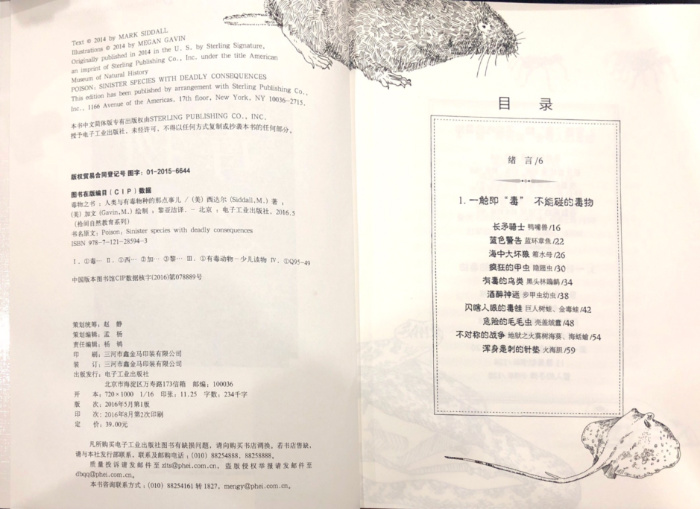 Text © 2014 by MARK SIDDALL
Illustrations © 2014 by MEGAN GAVIN
Originally published in 2014 in the U. S. by Sterling Signature,
an imprint of Sterling Publishing Co., Inc. under the title American
Museum of Natural History
POISON: SINISTER SPECIES WITH DEADLY CONSEQUENCES
This edition has been published by arrangement with Sterling Publishing Co.,
Inc., 1166 Avenue of the Americas, 17th floor, New York, NY 10036-2715.
本书中文简体版专有出版权由STERLING PUBLISHING CO., INC.
授予电子工业出版社,未经许可,不得以任何方式复制或抄袭本书的任何部分。
版权贸易合同登记号 图字:01-2015-6644
图书在版编目(CIP)数据
毒物之书:人类与有毒物种的那点事儿/(美)西达尔(Siddall,M.)著,
(美)加文(Gavin,M.)绘制;黎茵洁译. - 北京:电子工业出版社,2016.5
书名原文:Poison, Sinister species with deadly consequences
ISBN 978-7-121-28594-3
Ⅰ. ①毒… Ⅱ. ①西… ②加… ③黎… Ⅲ. ①有毒动物-少儿读物 Ⅳ. ①Q95-49
中国版本图书馆CIP数据核字(2016)第078889号
策划统筹:赵 静
策划编辑:孟 杨
责任编辑:杨 鸲
印 刷:三河市鑫金马印装有限公司
装 订:三河市鑫金马印装有限公司
出版发行:电子工业出版社
北京市海淀区万寿路173信箱 邮编:100036
开 本:720×1000 1/16 印张:11.25 字数:234千字
版 次:2016年5月第1版
印 次:2016年8月第2次印刷
定 价:39.00元
凡所购买电子工业出版社图书有缺损问题,请向购买书店调换。若书店售缺,
请与本社发行部联系,联系及邮购电话:(010)88254888,88258888。
质量投诉请发邮件至zlts@phei.com.cn,盗版侵权举报请发邮件至
dbqq@phei.com.cn。
本书咨询联系方式:(010)88254161转1827,mengyr@phei.com.cn。
目 录
绪 言/6
1. 一触即“毒” 不能碰的毒物
长矛骑士 鸭嘴兽/16
蓝色警告 蓝环章鱼/22
海中大坏狼 霞水母/26
疯狂的甲虫 隐翅虫/30
有毒的鸟类 黑头林鵙鹟/34
酒醉神迷 步甲虫幼虫/38
闪瞎人眼的毒蛙 巨人树蛙、金毒蛙/42
危险的毛毛虫 壳盖绒蠹/48
不对称的战争 地狱之火寡树海葵、海蛞蝓/54
浑身是刺的针垫 火海胆/59